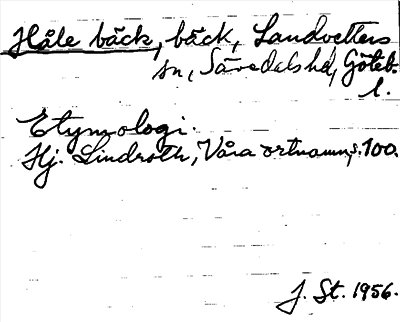 Håle bäck, bäck, Landvetters
sn, Sävedals hd, Göteb.
l.
Etymologi.
Hj. Lindroth, Våra ortnamn, s. 100.
J. St. 1956.